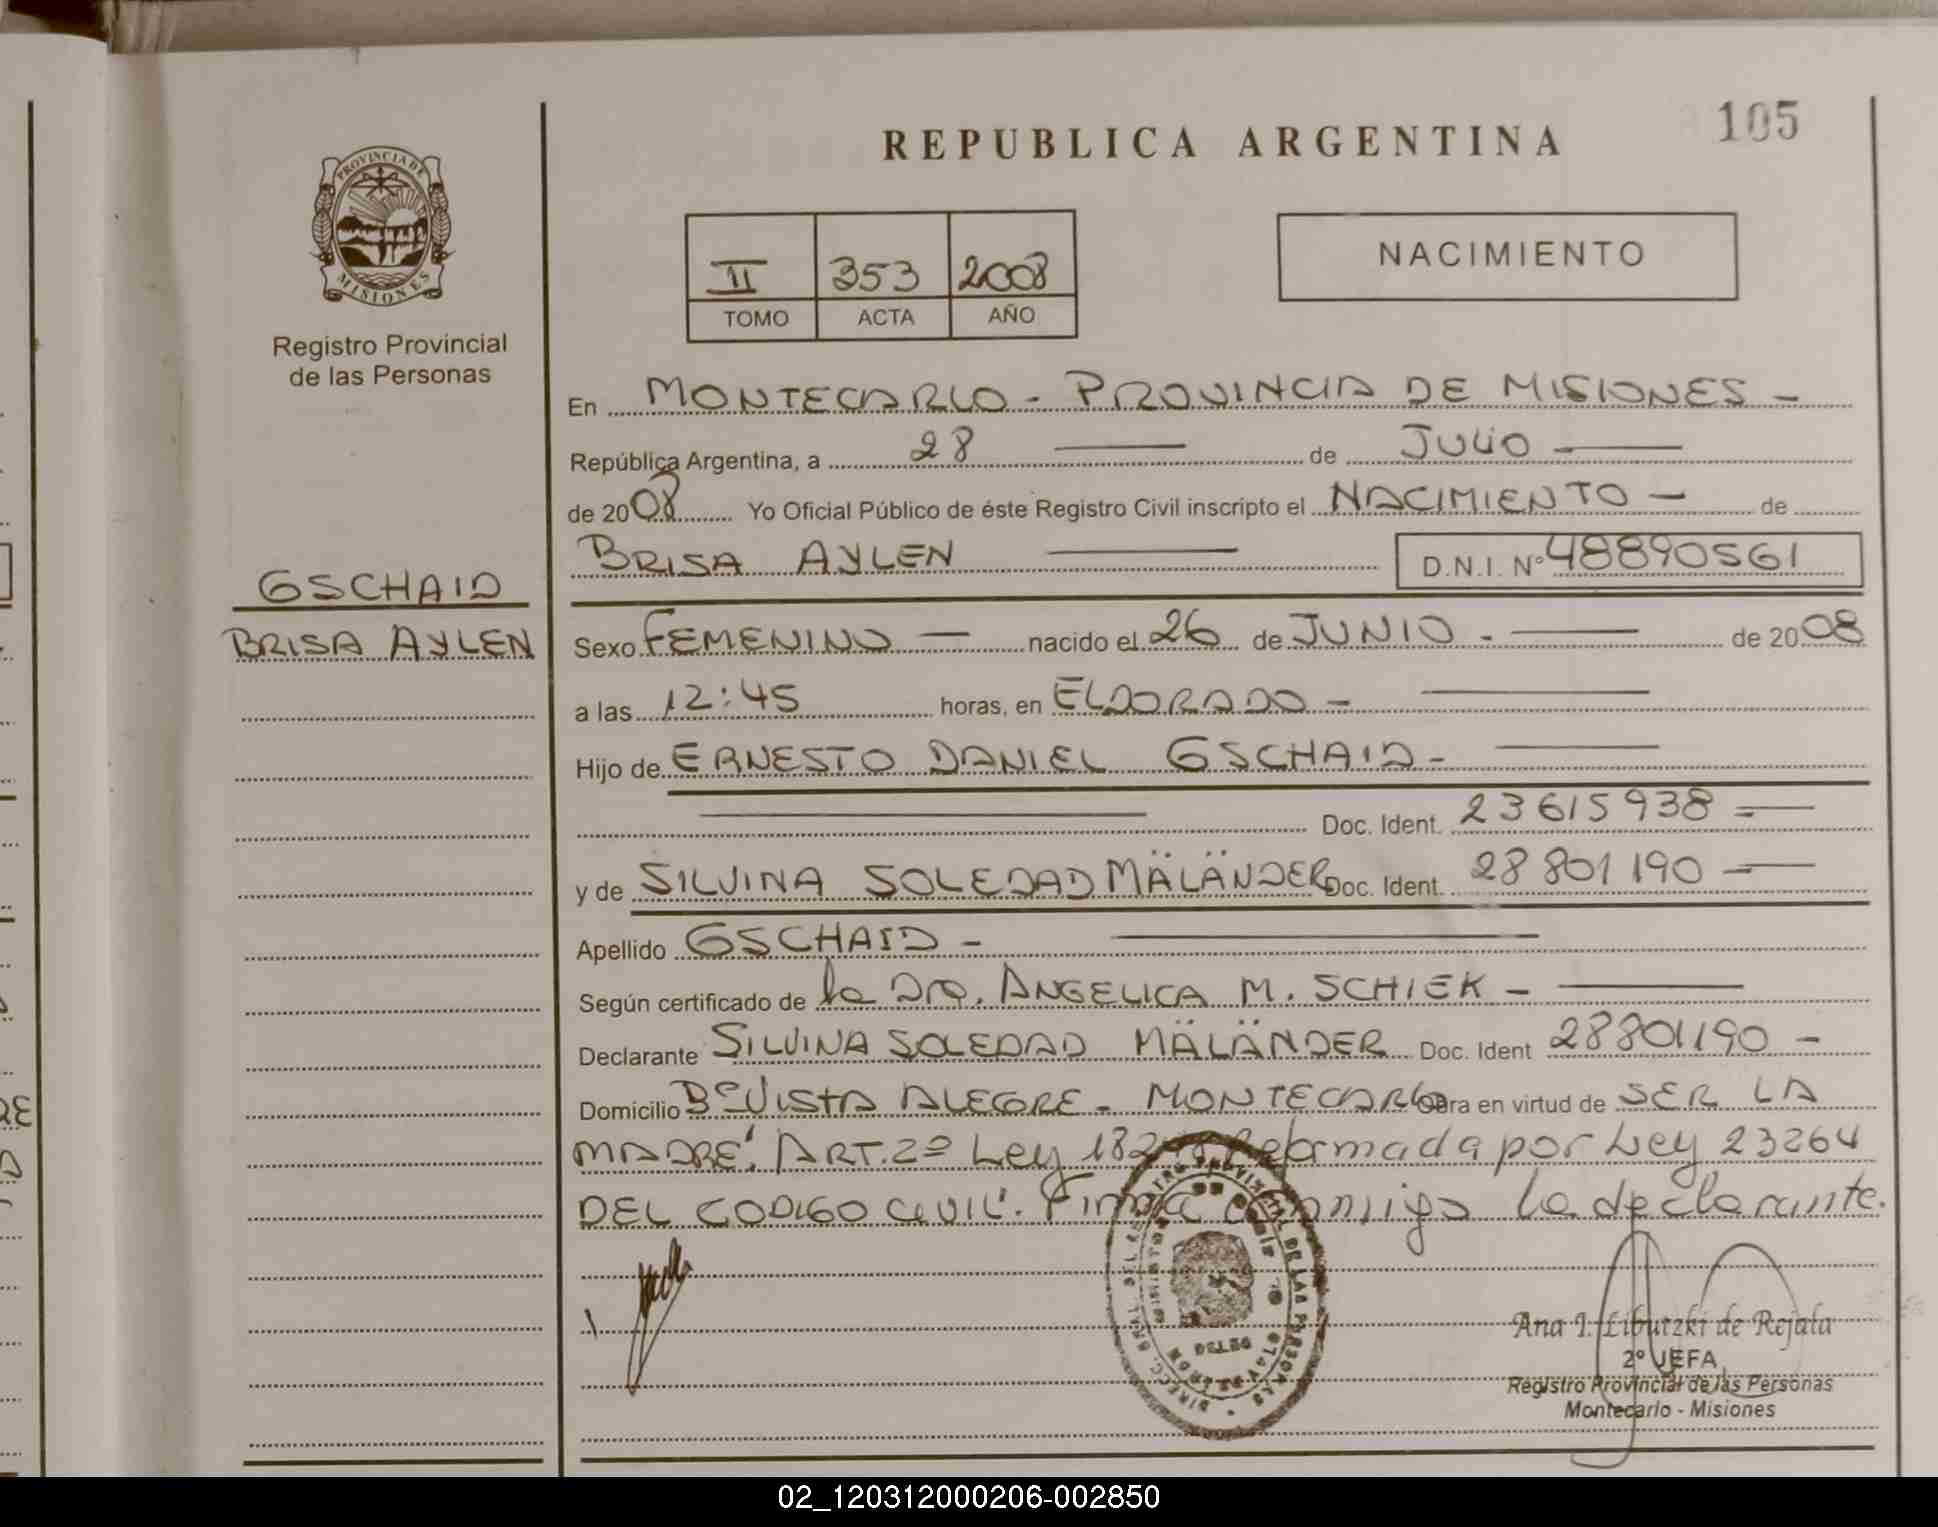 REPUBLICA ARGENTINA
105
PROVINCIA DE
MISIONES
Registro Provincial
de las Personas
II 353 2008
TOMO ACTA AÑO
NACIMIENTO
En MONTECARLO - PROVINCIA DE MISIONES -
República Argentina, a 28 de JULIO
de 2008 Yo Oficial Público de éste Registro Civil inscripto el NACIMIENTO - de
BRISA AYLEN D.N.I. Nº 48890561
GSCHAID
BRISA AYLEN
Sexo FEMENINO - nacido el 26 de JUNIO - de 2008
a las 12:45 horas, en ELDORADO -
Hijo de ERNESTO DANIEL GSCHAID -
Doc. Ident. 23615938 =
y de SILVINA SOLEDAD MÄLÄNDER Doc. Ident. 28801190 -
Apellido GSCHAID -
Según certificado de la Dra. ANGELICA M. SCHIEK -
Declarante SILVINA SOLEDAD MÄLÄNDER Doc. Ident 28801190 -
Domicilio Bº VISTA ALEGRE - MONTECARLO Obra en virtud de SER LA
MADRE. ART. 2º Ley Reformada por Ley 23264
DEL CODIGO CIVIL. Firma conmigo la declarante.
Ana I. Libutzki de Rejala
2º JEFA
Registro Provincial de las Personas
Montecarlo - Misiones
02_120312000206-002850